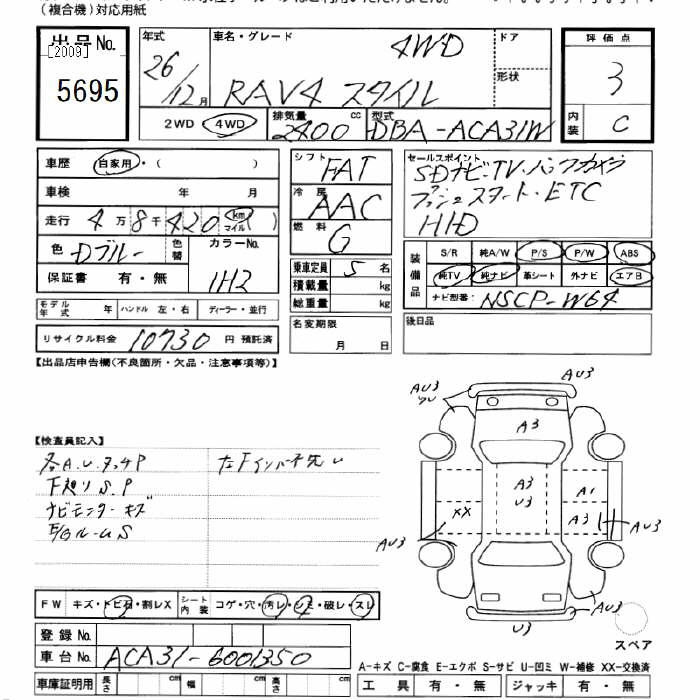 (複合機)対応用紙
出品No.
[2009]
5695
年式
26/12月
車名・グレード
4WD
RAV4 スタイル
ドア
形状
評価点
3
内装
C
2WD 4WD
排気量
2400 cc
型式
DBA-ACA31W
車歴 自家用・( )
車検 年 月
走行 4万8千420 km マイル
色 Dブルー 色替 カラーNo.
1H2
保証書 有・無
モデル年式 年 ハンドル 左・右 ディーラー・並行
リサイクル料金 10730 円 預託済
シフト FAT
冷房 AAC
燃料 G
乗車定員 5 名
積載量 kg
総重量 kg
名変期限
月 日
セールスポイント
SDナビ・TV・バックカメラ
プッシュスタート・ETC
HID
装備品
S/R 純A/W P/S P/W ABS
純TV 純ナビ 革シート 外ナビ エアB
ナビ型番 NSCP-W64
後日品
【出品店申告欄(不良箇所・欠品・注意事項等)】
【検査員記入】
各A.U.タッチP
下廻りS.P
ナビモニターキズ
E/Gルーム S
左Fインパネ先U
AU3
AU3
A3
A3
U3
XX
A1
A3
AU3
AU3
AU3
U3
スペア
FW キズ・トビ石・割レX シート内装 コゲ・穴・汚レ・シミ・破レ・スレ
登録No.
車台No. ACA31-6001350
車庫証明用 長さ cm 幅 cm 高さ cm
A-キズ C-腐食 E-エクボ S-サビ U-凹ミ W-補修 XX-交換済
工具 有・無 ジャッキ 有・無